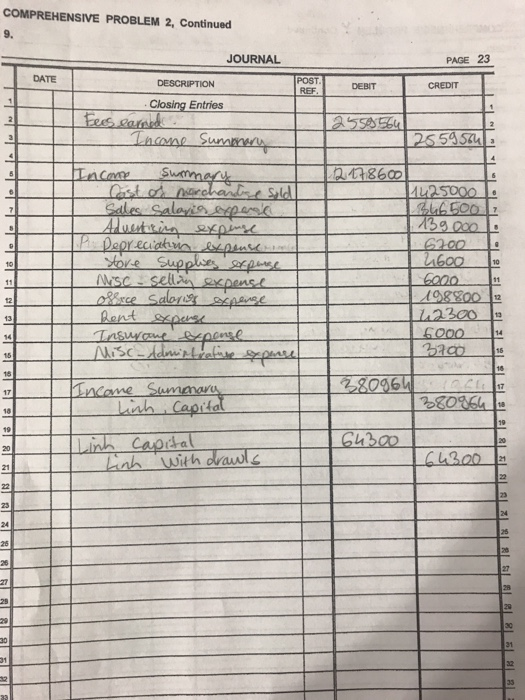 COMPREHENSIVE PROBLEM 2, Continued
9.
JOURNAL PAGE 23
DATE DESCRIPTION POST. REF. DEBIT CREDIT
1 Closing Entries 1
2 Fees earned 2559564 2
3 Income Summary 2559564 3
4 4
5 Income Summary 2178600 5
6 Cost of merchandise Sold 1425000 6
7 Sales Salaries expense 346500 7
8 Advertising expense 139000 8
9 Depreciation expense 9
10 Store Supplies expense 4600 10
11 Misc - selling expense 6000 11
12 office Salaries expense 198800 12
13 Rent expense 42300 13
14 Insurance expense 5000 14
15 Misc - Administrative expense 3700 15
16 16
17 Income Summary 380964 17
18 Linh, Capital 380964 18
19 19
20 Linh Capital 64300 20
21 Linh Withdrawls 64300 21
22 22
23 23
24 24
25 25
26 26
27 27
28 28
29 29
30 30
31 31
32 32
33 33